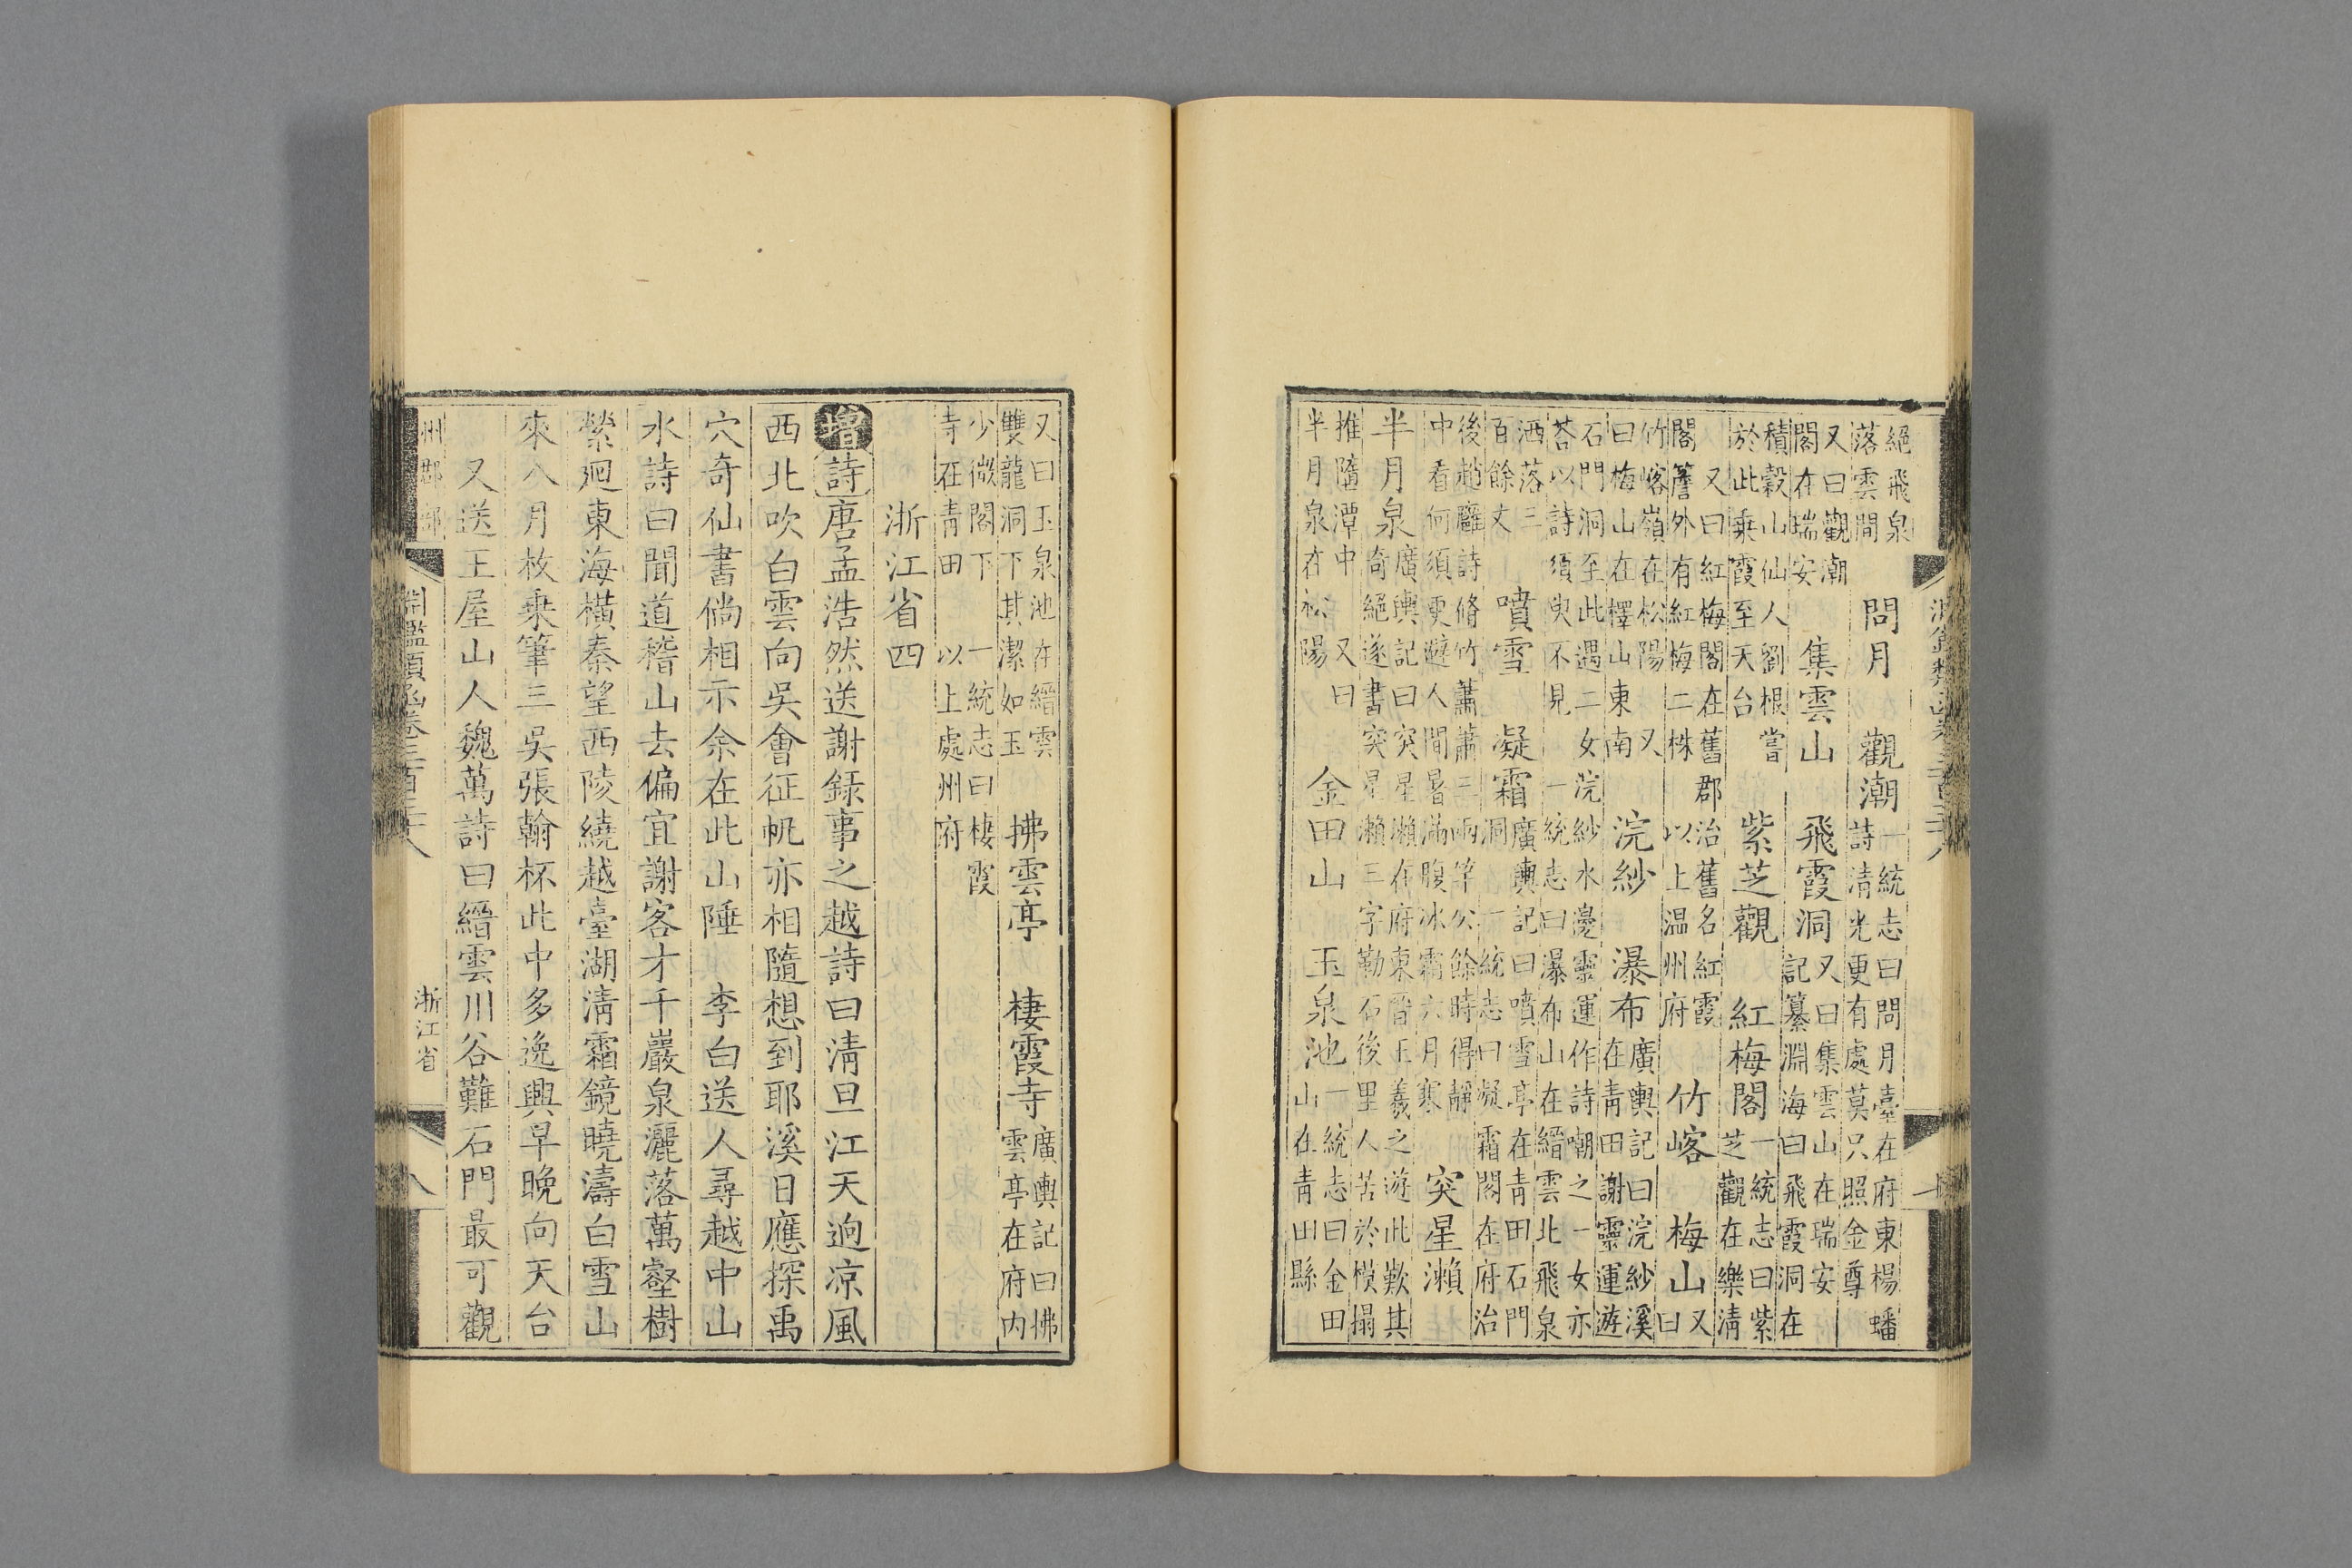 絕飛泉
落雲間
問月　觀潮
一統志曰問月臺在府東楊蟠
詩清光更有處莫只照金尊
又曰觀潮
閣在瑞安
集雲山　飛霞洞
又曰集雲山在瑞安
記纂淵海曰飛霞洞在
積穀山仙人劉根嘗
於此乘霞至天台
紫芝觀　紅梅閣
一統志曰紫
芝觀在樂清
又曰紅梅閣在舊郡治舊名紅霞
閣簷外有紅梅二株　以上温州府
竹㟯　梅山
又
曰
竹㟯嶺在松陽　又
曰梅山在檡山東南
浣紗　瀑布
廣輿記曰浣紗溪
在青田謝靈運遊
石門洞至此遇二女浣紗水邊靈運作詩嘲之一女亦
荅以詩須臾不見　一統志曰瀑布山在縉雲北飛泉
洒落三
百餘丈
噴雪　凝霜
廣輿記曰噴雪亭在青田石門
洞　一統志曰凝霜閣在府治
後趙詩脩竹蕭蕭三兩竿公餘時得靜
中看何須更避人間暑滿腹冰霜六月寒
突星瀨
半月泉
廣輿記曰突星瀨在府東晉王羲之遊此歎其
奇絕遂書突星瀨三字勒石後里人苦於模搨
推墮潭中　又曰
半月泉在松陽
金田山　玉泉池
一統志曰金田
山在青田縣
又曰玉泉池在縉雲
雙龍洞下其潔如玉
拂雲亭　棲霞寺
廣輿記曰拂
雲亭在府內
少微閣下　一統志曰棲霞
寺在青田　以上處州府
浙江省四
增詩唐孟浩然送謝錄事之越詩曰清旦江天迥涼風
西北吹白雲向吳會征帆亦相隨想到耶溪日應探禹
穴奇仙書倘相示余在此山陲　李白送人尋越中山
水詩曰聞道稽山去偏宜謝客才千巖泉灑落萬壑樹
縈迴東海橫秦望西陵繞越臺湖清霜鏡曉濤白雪山
來八月枚乘筆三吳張翰杯此中多逸興早晚向天台
又送王屋山人魏萬詩曰縉雲川谷難石門最可觀
州郡部
淵鑑類函卷三百三十八
浙江省
八